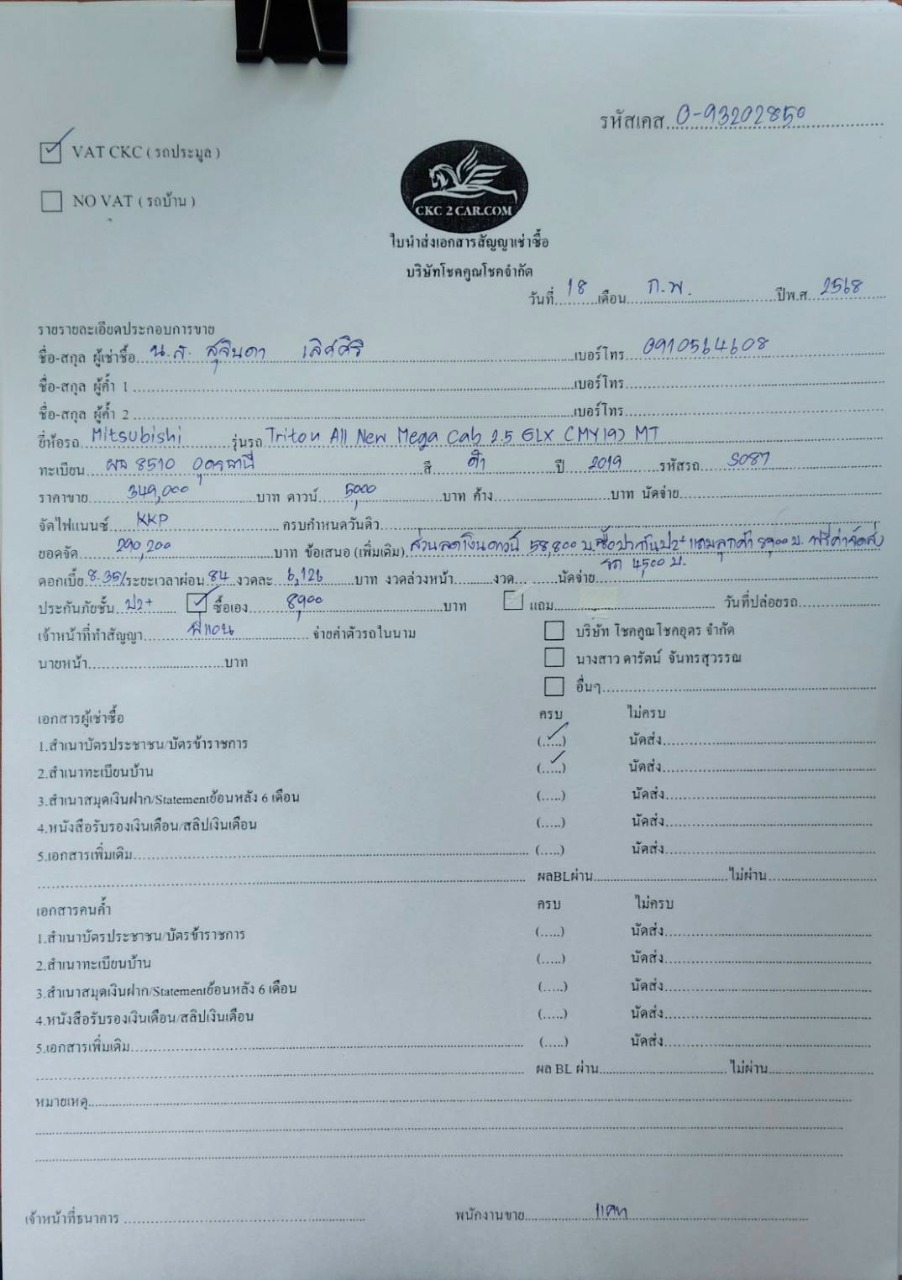 รหัสเคส 0-93202850
VAT CKC ( รถประมูล )
NO VAT ( รถบ้าน )
CKC 2 CAR.COM
ใบนำส่งเอกสารสัญญาเช่าซื้อ
บริษัทโชคคูณโชคจำกัด
วันที่ 18 เดือน ก.พ. ปีพ.ศ 2568
รายรายละเอียดประกอบการขาย
ชื่อ-สกุล ผู้เช่าซื้อ น.ส. สุจินดา เลิศศิริ เบอร์โทร 0910564608
ชื่อ-สกุล ผู้ค้ำ 1 เบอร์โทร
ชื่อ-สกุล ผู้ค้ำ 2 เบอร์โทร
ยี่ห้อรถ Mitsubishi รุ่นรถ Triton All New Mega Cab 2.5 GLX (MY19) MT
ทะเบียน ผล 8510 อุดรธานี สี ดำ ปี 2019 รหัสรถ S087
ราคาขาย 349,000 บาท ดาวน์ 5,000 บาท ค้าง บาท นัดจ่าย
จัดไฟแนนซ์ KKP ครบกำหนดวันดิว
ยอดจัด 290,200 บาท ข้อเสนอ (เพิ่มเติม) ส่วนลดเงินดาวน์ 58,800 บ. ซื้อประกันป2+ แถมลูกค้า 8900 บ. ฟรีค่าจัดส่ง
รถ 4,500 บ.
ดอกเบี้ย 8.35/ ระยะเวลาผ่อน 84 งวดละ 6,126 บาท งวดล่วงหน้า งวด นัดจ่าย
ประกันภัยชั้น ป2+ ซื้อเอง 8,900 บาท แถม วันที่ปล่อยรถ
เจ้าหน้าที่ทำสัญญา พี่แอน จ่ายค่าตัวรถในนาม บริษัท โชคคูณโชคอุดร จำกัด
นายหน้า บาท นางสาว ดารัตน์ จันทรสุวรรณ
อื่นๆ
เอกสารผู้เช่าซื้อ ครบ ไม่ครบ
1.สำเนาบัตรประชาชน/บัตรข้าราชการ (.....) นัดส่ง
2.สำเนาทะเบียนบ้าน (.....) นัดส่ง
3.สำเนาสมุดเงินฝาก/Statementย้อนหลัง 6 เดือน (.....) นัดส่ง
4.หนังสือรับรองเงินเดือน/สลิปเงินเดือน (.....) นัดส่ง
5.เอกสารเพิ่มเติม (.....) นัดส่ง
ผลBLผ่าน ไม่ผ่าน
เอกสารคนค้ำ ครบ ไม่ครบ
1.สำเนาบัตรประชาชน/บัตรข้าราชการ (.....) นัดส่ง
2.สำเนาทะเบียนบ้าน (.....) นัดส่ง
3.สำเนาสมุดเงินฝาก/Statementย้อนหลัง 6 เดือน (.....) นัดส่ง
4.หนังสือรับรองเงินเดือน/สลิปเงินเดือน (.....) นัดส่ง
5.เอกสารเพิ่มเติม (.....) นัดส่ง
ผล BL ผ่าน ไม่ผ่าน
หมายเหตุ
เจ้าหน้าที่ธนาคาร พนักงานขาย แคท